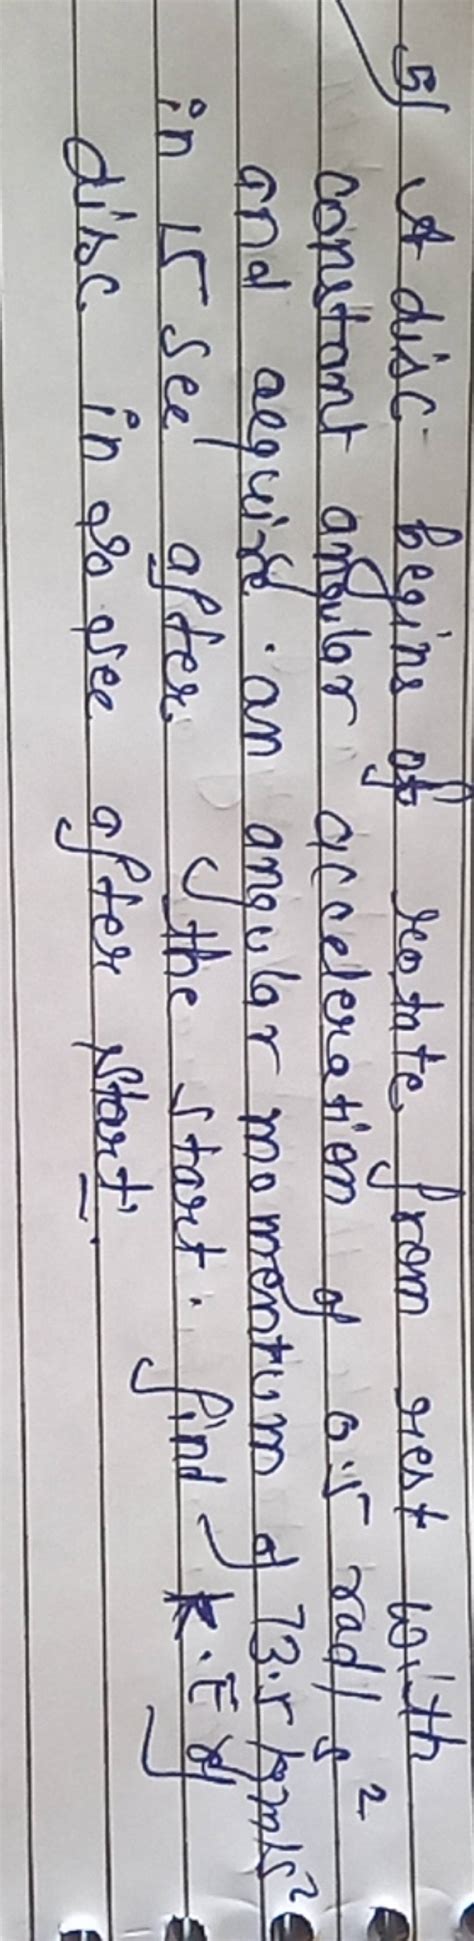 5) A disc begins of rotate from rest with
constant angular acceleration of 0.5 rad/s²
and aequire an angular momentum of 73.5 kgm/s²
in 15 sec after the start. find K.E of
disc in 20 sec after start.